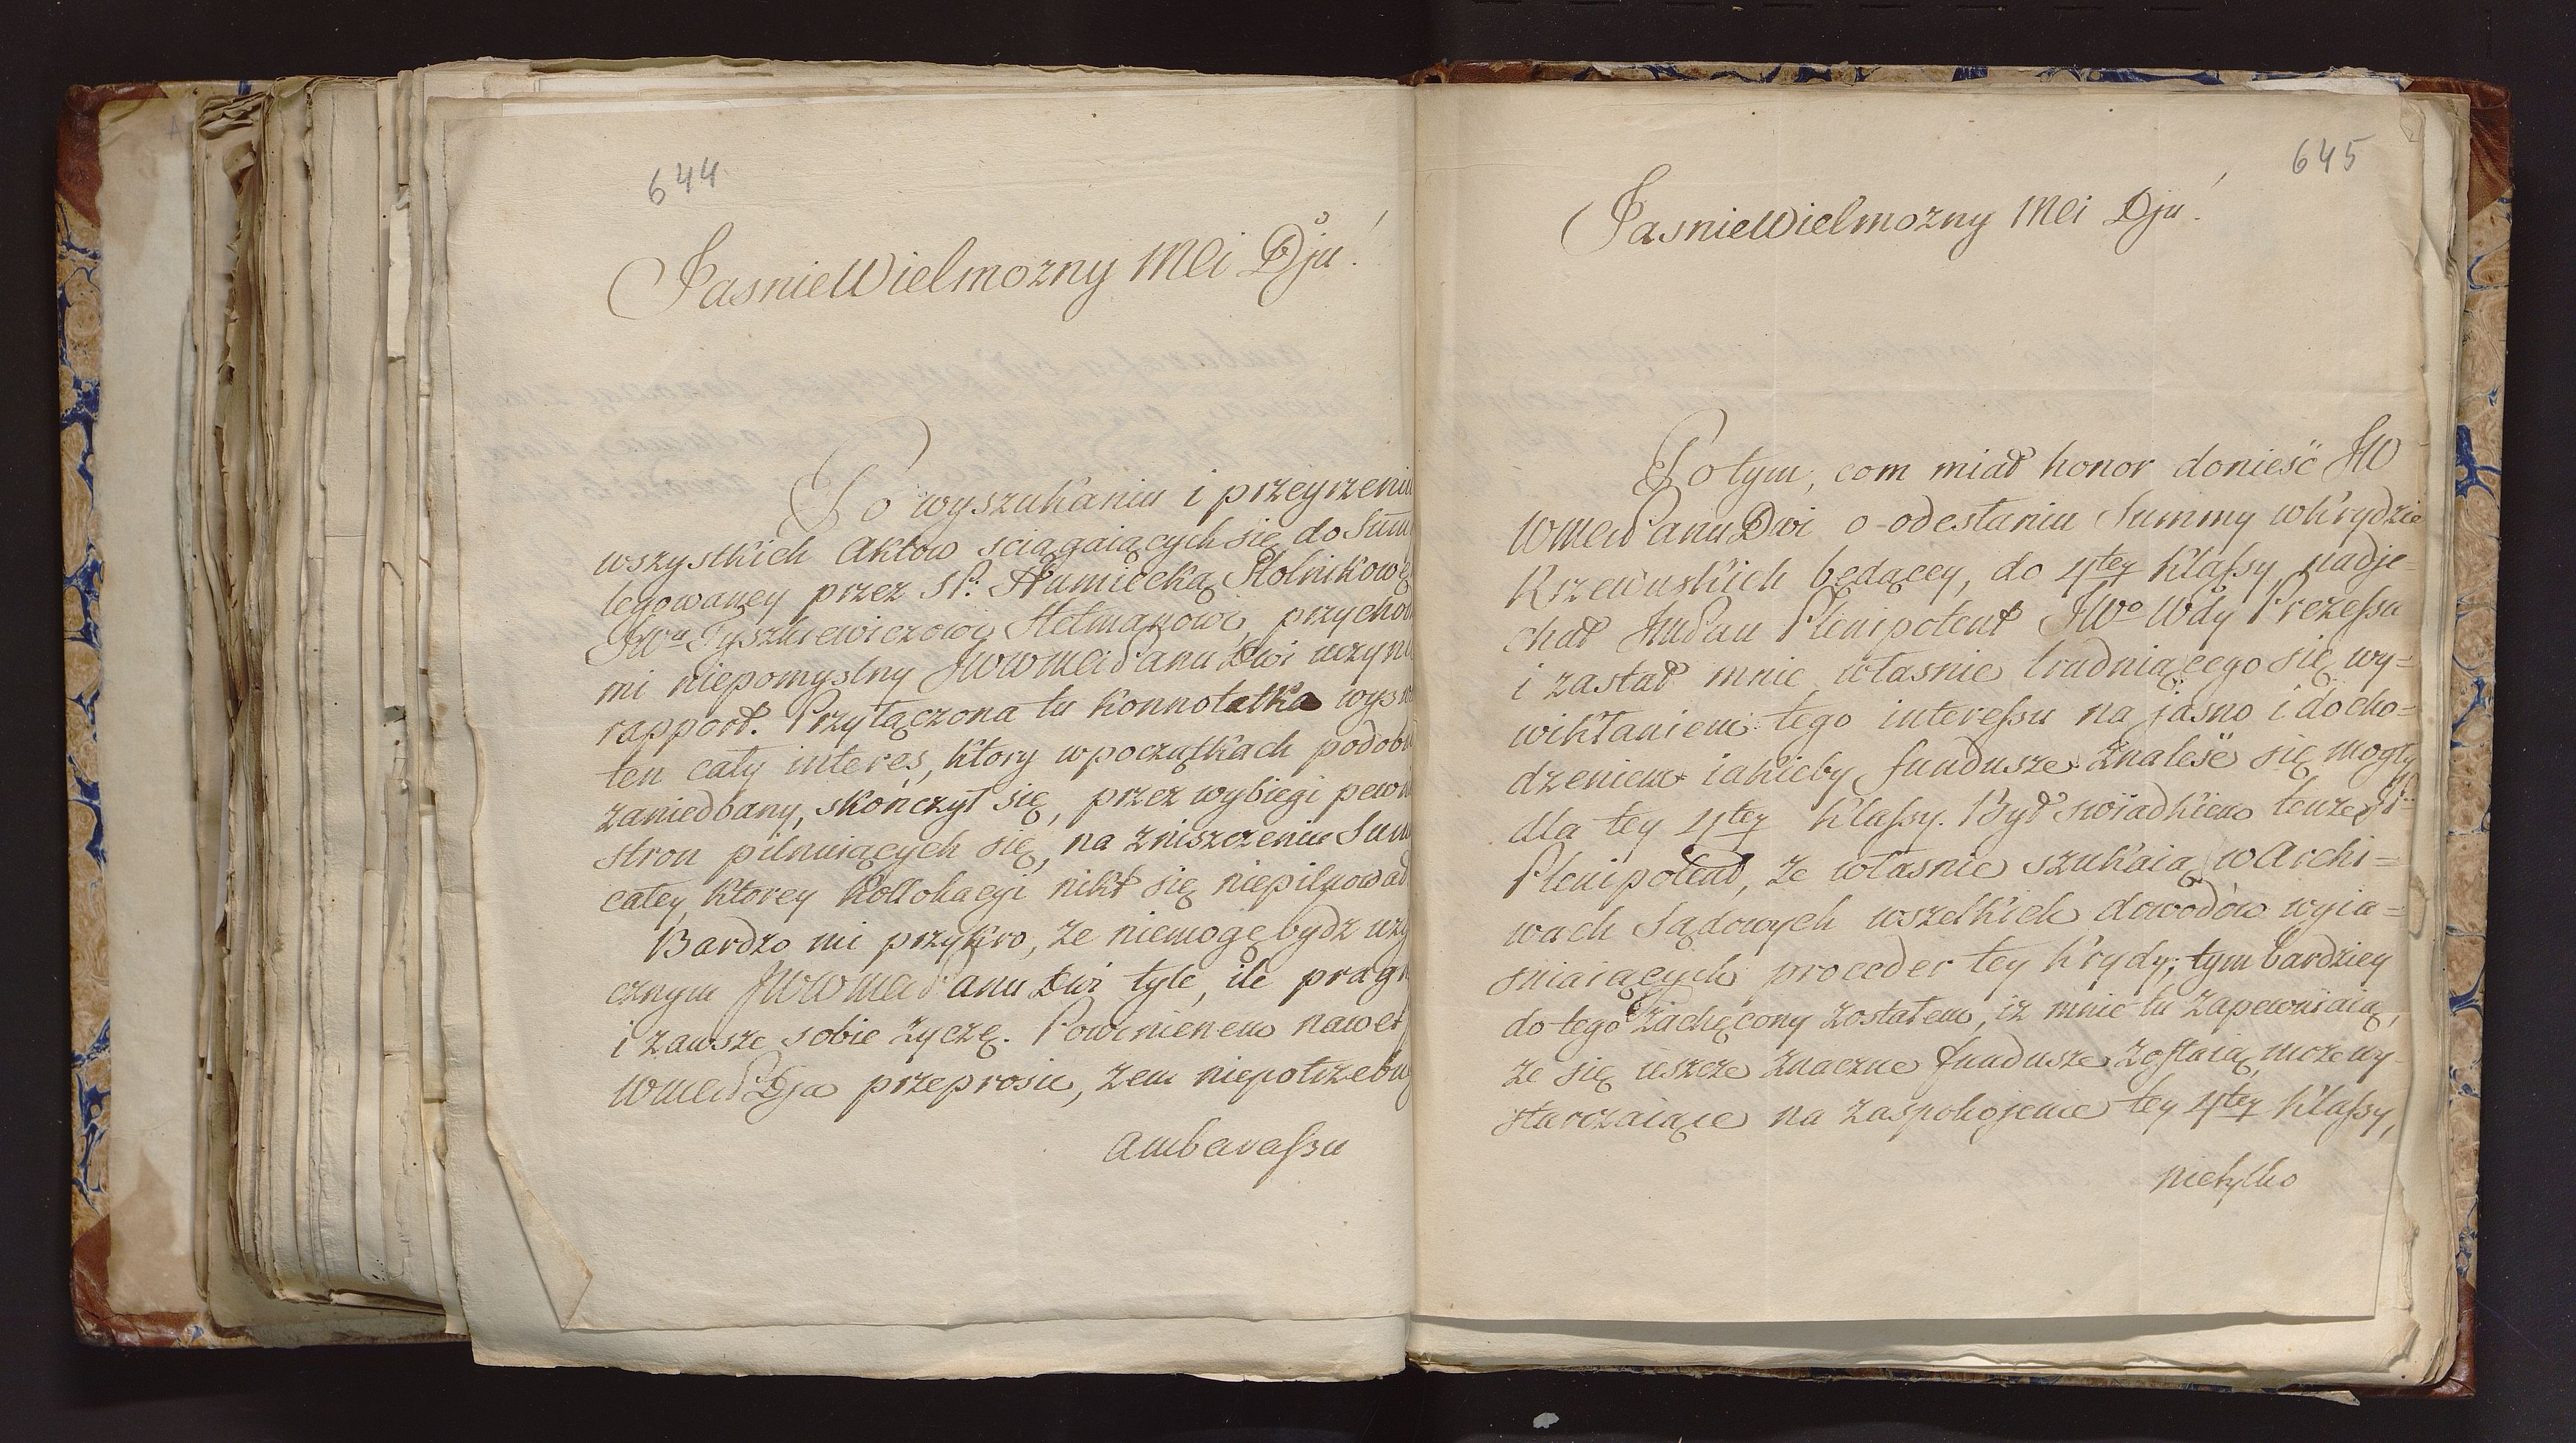 644
JasnieWielmozny Mci Dju!
Po wyszukaniu i przeyrzeniu
wszystkich Aktow sciągaiących się do Sum
legowaney przez SP. Humiecką Stolnikową
JWu Tyszkiewiczowi Hetmanowi, przychod
mi niepomyslny JWWMciPanu Dwi uczyni
rapport. Przyłączona tu konnotatka wysw
ten cały interes, ktory w początkach podobn
zaniedbany, skończył się, przez wybiegi pewn
stron pilnuiących się, na zniszczeniu Sum
całey, ktorey kollokacyi nikt się niepilnował
Bardzo mi przykro, że niemogę bydz uży
cznym JWWMciPanu Dwi tyle, ile pragn
i zawsze sobie życzę. Powinienem nawet
WMciPDja przeprosić, żem niepotrzebn
ambarassu
645
JasnieWielmozny Mci Dju!
Po tym, com miał honor donieść JW
WMciPanu Dwi o odesłaniu Summy w krydzie
Rzewuskich będącey, do 4tey klassy, nadje=
chał JmPan Plenipotent JWo Wdy Prezessa
i zastał mnie własnie trudniącego się wy=
wikłaniem tego interessu na jasno i docho=
dzeniem iakieby fundusze znaleść się mogły
dla tey 4tey klassy. Był swiadkiem tenze JP.
Plenipotent, ze własnie szukaią w Archi=
wach Sądowych wszelkich dowodów wyia=
sniaiących proceder tey krydy; tym bardziey
do tego zachęcony zostałem, iz mnie tu zapewniaią,
ze się ieszcze znaczne fundusze zostaią, może wy=
starczaiące na zaspokojenie tey 4tey klassy,
nietylko